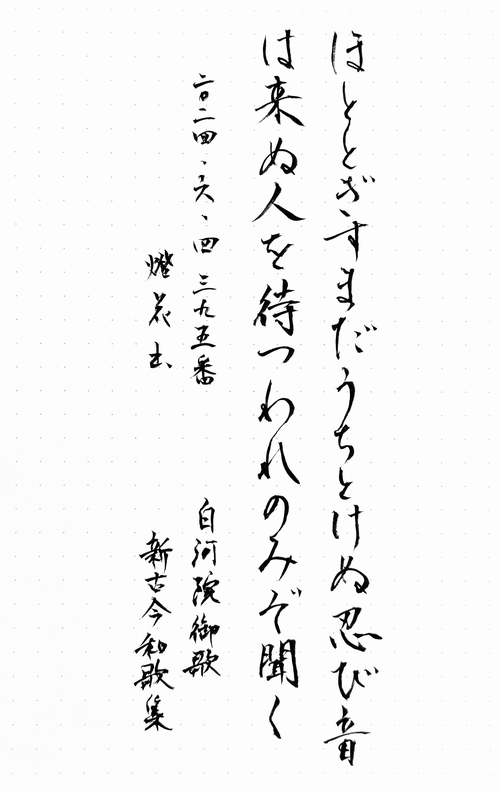 ほととぎすまだうちとけぬ忍び音
は来ぬ人を待つわれのみぞ聞く
二〇二四、六、四 三九五番
白河院御歌
燈花書
新古今和歌集